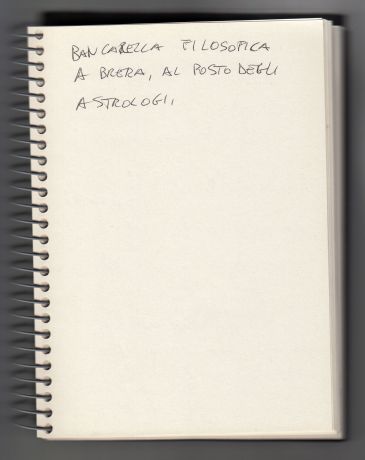 BANCARELLA FILOSOFICA
A BRERA, AL POSTO DEGLI
ASTROLOGI.